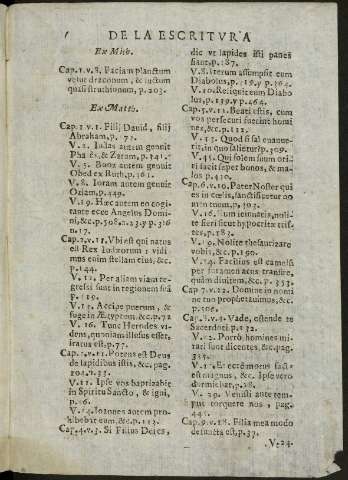 DE LA ESCRITVRA
Ex Mich.
Cap. 1. v. 8. Faciam planctum
velut draconum, & luctum
quasi struthionum, p. 203.
Ex Matth.
Cap. 1. v. 1. Filij Dauid, filij
Abraham, p. 72.
V. 3. Iudas autem genuit
Pharés, & Zaram, p. 341.
V. 5. Booz autem genuit
Obed ex Ruth, p. 161.
V. 8. Ioram autem genuit
Oziam, p. 449.
V. 19. Hæc autem eo cogi-
tante ecce Angelus Domi-
ni, &c. p.
Cap. 2. v. 11. Vbi est qui natus
est Rex Iudæorum: vidi
mus enim stellam eius, &c.
p. 144.
V. 12. Per aliam viam re-
gressi sunt in regionem suã
p. 119.
V. 13. Accipe puerum, &
fuge in Ægyptum, &c. p. 72
V. 16. Tunc Herodes vi-
dens, quoniam illusus esset,
iratus est, p. 77.
Cap. 3. v. 11. Potens est Deus
de lapidibus istis, &c. pag.
V. 11. Ipse vos baptizabit
in Spiritu Sancto, & igni,
p. 16.
V. 14. Ioannes autem pro-
hibebat eum, &c. p. 112.
Cap. 4. v. 3. Si Filius Dei es,
dic vt lapides isti panes
fiant, p. 187.
V. 8. Iterum assumpsit eum
Diabolus, p. 139. y p. 364.
V. 10. Reliquit eum Diabo
lus, p. 139. y p. 464.
Cap. 5. v. 11. Beati estis, cum
vos persecuti fuerint homi
nes, &c. p. 112.
V. 13. Quod si sal euanue-
rit, in quo salietur? p. 309.
V. 45. Qui solem suum ori
ri facit super bonos, & ma-
los, p. 430.
Cap. 6. v. 10. Pater Noster qui
es in cœlis, sanctificetur no
men tuum, p. 303.
V. 16. Cum ieiunatis, noli-
te fieri sicut hypocritæ tris
tes, p. 183.
V. 19. Nolite thesaurizare
vobis, &c. p. 190.
V. 24. Facilius est camelũ
per foramen acus transire,
quàm diuitem, &c. p. 353.
Cap. 7. v. 22. Domine in nomi
ne tuo prophetauimus, &c.
p. 306.
Cap. 8. v. 4. Vade, ostende te
Sacerdoti, p. 132.
V. Porrò homines mi-
rati sunt dicentes, &c. pag.
V. Et ecce motus fac-
est magnus, &c. Ipse verò
dormiebat, p. 28.
V. 29. Venisti ante tem-
pus torquere nos, pag.
Cap. 9. v. 18. Filia mea modo
defuncta est, p. 37.
V. 24.